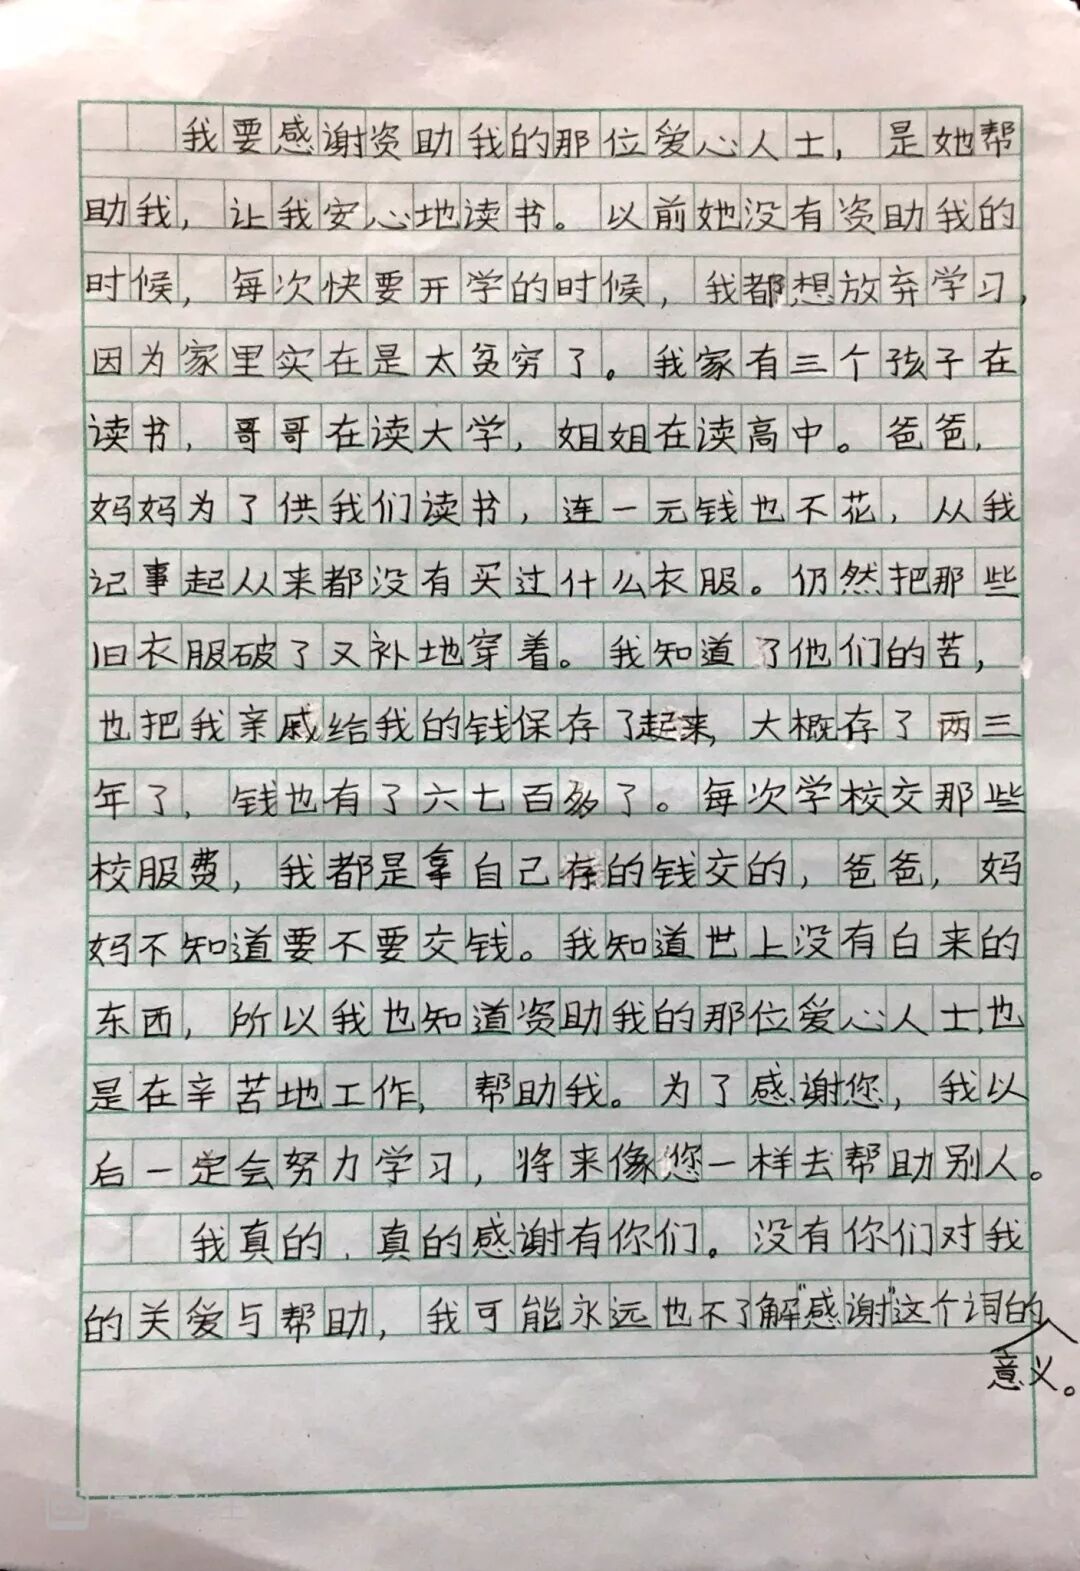 我要感谢资助我的那位爱心人士，是她帮
助我，让我安心地读书。以前她没有资助我的
时候，每次快要开学的时候，我都想放弃学习，
因为家里实在是太贫穷了。我家有三个孩子在
读书，哥哥在读大学，姐姐在读高中。爸爸，
妈妈为了供我们读书，连一元钱也不花，从我
记事起从来都没有买过什么衣服。仍然把那些
旧衣服破了又补地穿着。我知道了他们的苦，
也把我亲戚给我的钱保存了起来，大概存了两三
年了，钱也有了六七百多了。每次学校交那些
校服费，我都是拿自己存的钱交的，爸爸，妈
妈不知道要不要交钱。我知道世上没有白来的
东西，所以我也知道资助我的那位爱心人士，也
是在辛苦地工作，帮助我。为了感谢您，我以
后一定会努力学习，将来像您一样去帮助别人。
我真的，真的感谢有你们。没有你们对我
的关爱与帮助，我可能永远也不了解“感谢”这个词的
意义。